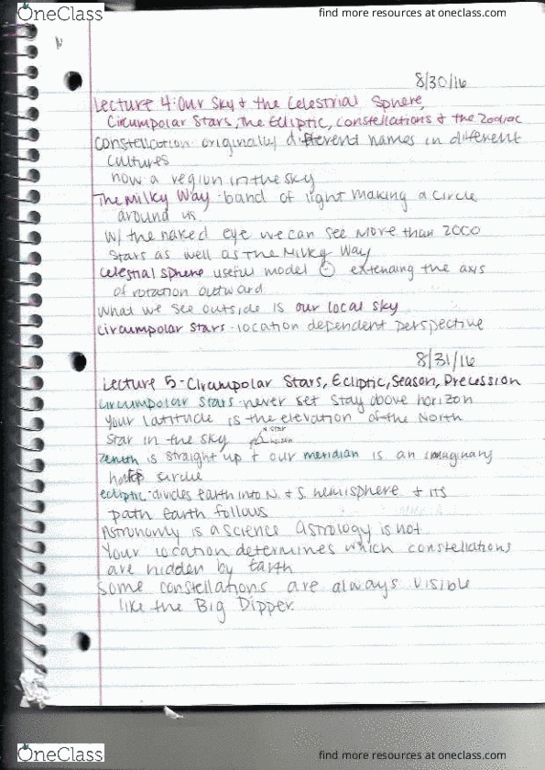 OneClass
find more resources at oneclass.com
N
8/30/16
Lecture 4: Our Sky & the Celestrial Sphere,
Circumpolar Stars, the Ecliptic, constellations & the Zodiac
Constellation: originally different names in different
cultures
now a region in the sky
The Milky Way - band of light making a circle
around us
w/ the naked eye we can see more than 2000
stars as well as the Milky Way
Celestial sphere useful model extending the axis
of rotation outward
what we see outside is our local sky
circumpolar stars - location dependent perspective
8/31/16
Lecture 5 - Circumpolar Stars, Ecliptic, Season, Precession
circumpolar stars - never set stay above horizon
Your latitude is the elevation of the North
Star in the sky
star
Zenith is straight up & our meridian is an imaginary
half circle
ecliptic - divides earth into N. & S. hemisphere & its
path earth follows
Astronomy is a science astrology is not
Your location determines which constellations
are hidden by Earth
Some constellations are always visible
like the Big Dipper.
OneClass
find more resources at oneclass.com